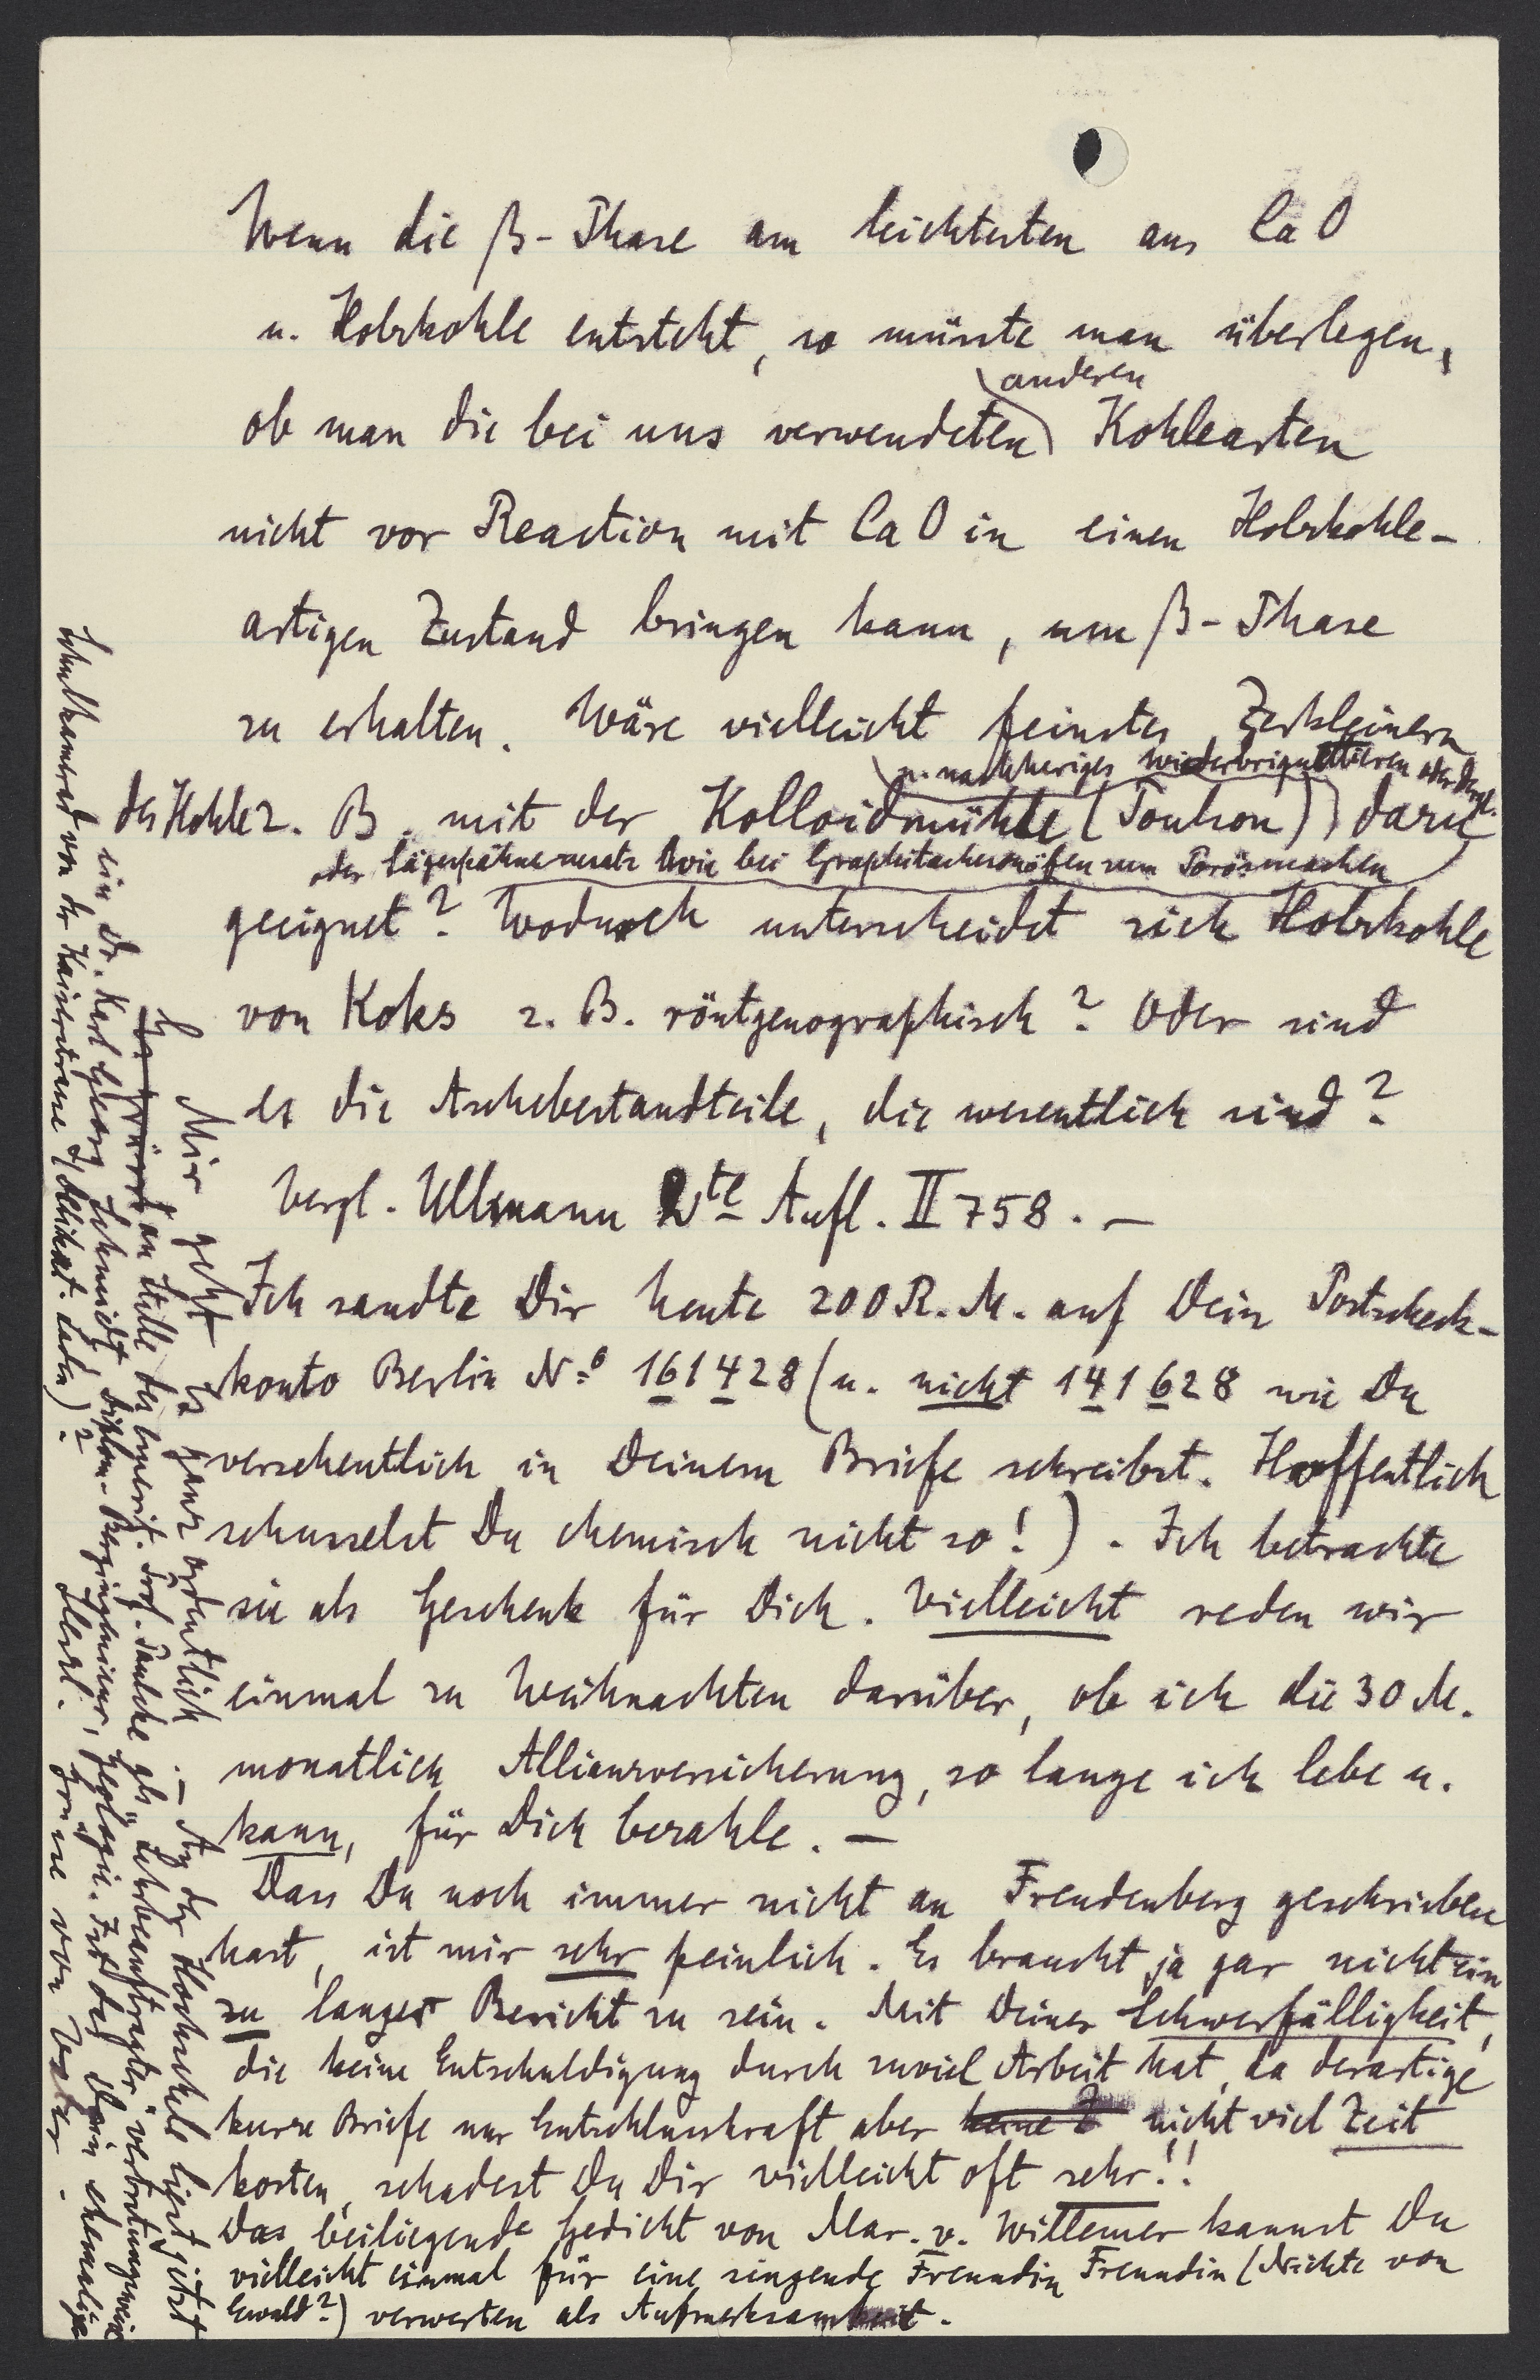 Wenn die β-Phase am leichtesten aus CaO
u. Holzkohle entsteht, so müsste man überlegen,
anderen
ob man die bei uns verwendeten Kohlearten
nicht vor Reaction mit CaO in einen Holzkohle-
artigen Zustand bringen kann, um β-Phase
zu erhalten. Wäre vielleicht feinstes Zerkleinern
u. nachheriges Wiederbrikettieren oder dergl.
der Kohle z. B. mit der Kolloidmühle (Touhon) dazu
oder Sägespähnezusatz wie bei Graphitachesonöfen zum Porösmachen
geeignet? Wodurch unterscheidet sich Holzkohle
von Koks z. B. röntgenographisch? Oder sind
es die Aschebestandteile, die wesentlich sind?
Vergl. Ullmann 2te Aufl. II 758. —
Ich sandte Dir heute 200 R.M. auf Dein Postscheck-
konto Berlin No 161428 (u. nicht 141628 wie Du
versehentlich in Deinem Briefe schreibst. Hoffentlich
schusselst Du chemisch nicht so!). Ich betrachte
sie als Geschenk für Dich. Vielleicht reden wir
einmal zu Weihnachten darüber, ob ich die 30 M.
monatlich Allianzversicherung, so lange ich lebe u.
kann, für Dich bezahle. —
Dass Du noch immer nicht an Freudenberg geschrieben
hast, ist mir sehr peinlich. Es braucht ja gar nicht ein
zu langer Bericht zu sein. Mit Deiner Schwerfälligkeit,
die keine Entschuldigung durch zuviel Arbeit hat, da derartige
kurze Briefe nur Entschlusskraft aber keine Z nicht viel Zeit
kosten, schadest Du Dir vielleicht oft sehr!!
Das beiliegende Gedicht von Mar. v. Willemer kannst Du
vielleicht einmal für eine singende Freundin Freundin (Nichte von
Ewald?) verwerten als Aufmerksamkeit.
Mir geht es ganz ordentlich. — An der Hochschule liest jetzt
an Stelle des emerit. Prof. Paulcke als Lehrbeauftragter vertretungsweise
ein Dr. Karl Georg Schmidt, Diplom-Bergingenieur, Geologie. Ist das Dein ehemaliger
Schulkamerad von der Kaiserstrasse (Delikat. Laden)? Herzl. Grüsse von Vater.